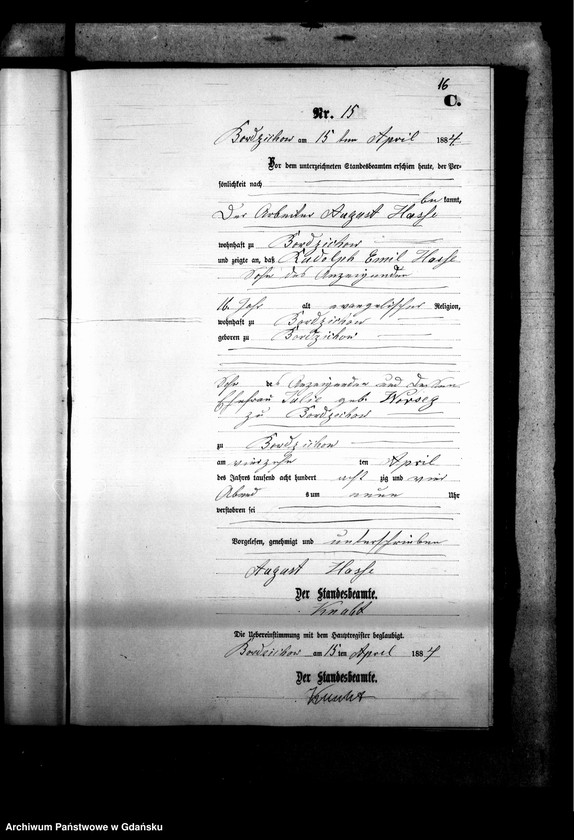 16
C.
Nr. 15
Bordzichow am 15 ten April 1884.
Vor dem unterzeichneten Standesbeamten erschien heute, der Per-
sönlichkeit nach
be kannt,
Der Arbeiter August Hasse
wohnhaft zu Bordzichow
und zeigte an, daß Rudolph Emil Hasse
Sohn des Anzeigenden
16 Jahr alt evangelischer Religion,
wohnhaft zu Bordzichow
geboren zu Bordzichow
Sohn des Anzeigenden und dessen
Ehefrau Julie geb.
zu Bordzichow
zu Bordzichow
am vierzehn ten April
des Jahres tausend acht hundert acht zig und vier
Abend s um neun Uhr
verstorben sei
Vorgelesen, genehmigt und unterschrieben
August Hasse
Der Standesbeamte.
Die Uebereinstimmung mit dem Hauptregister beglaubigt.
Bordzichow am 15 ten April 1884
Der Standesbeamte.
Archiwum Państwowe w Gdańsku